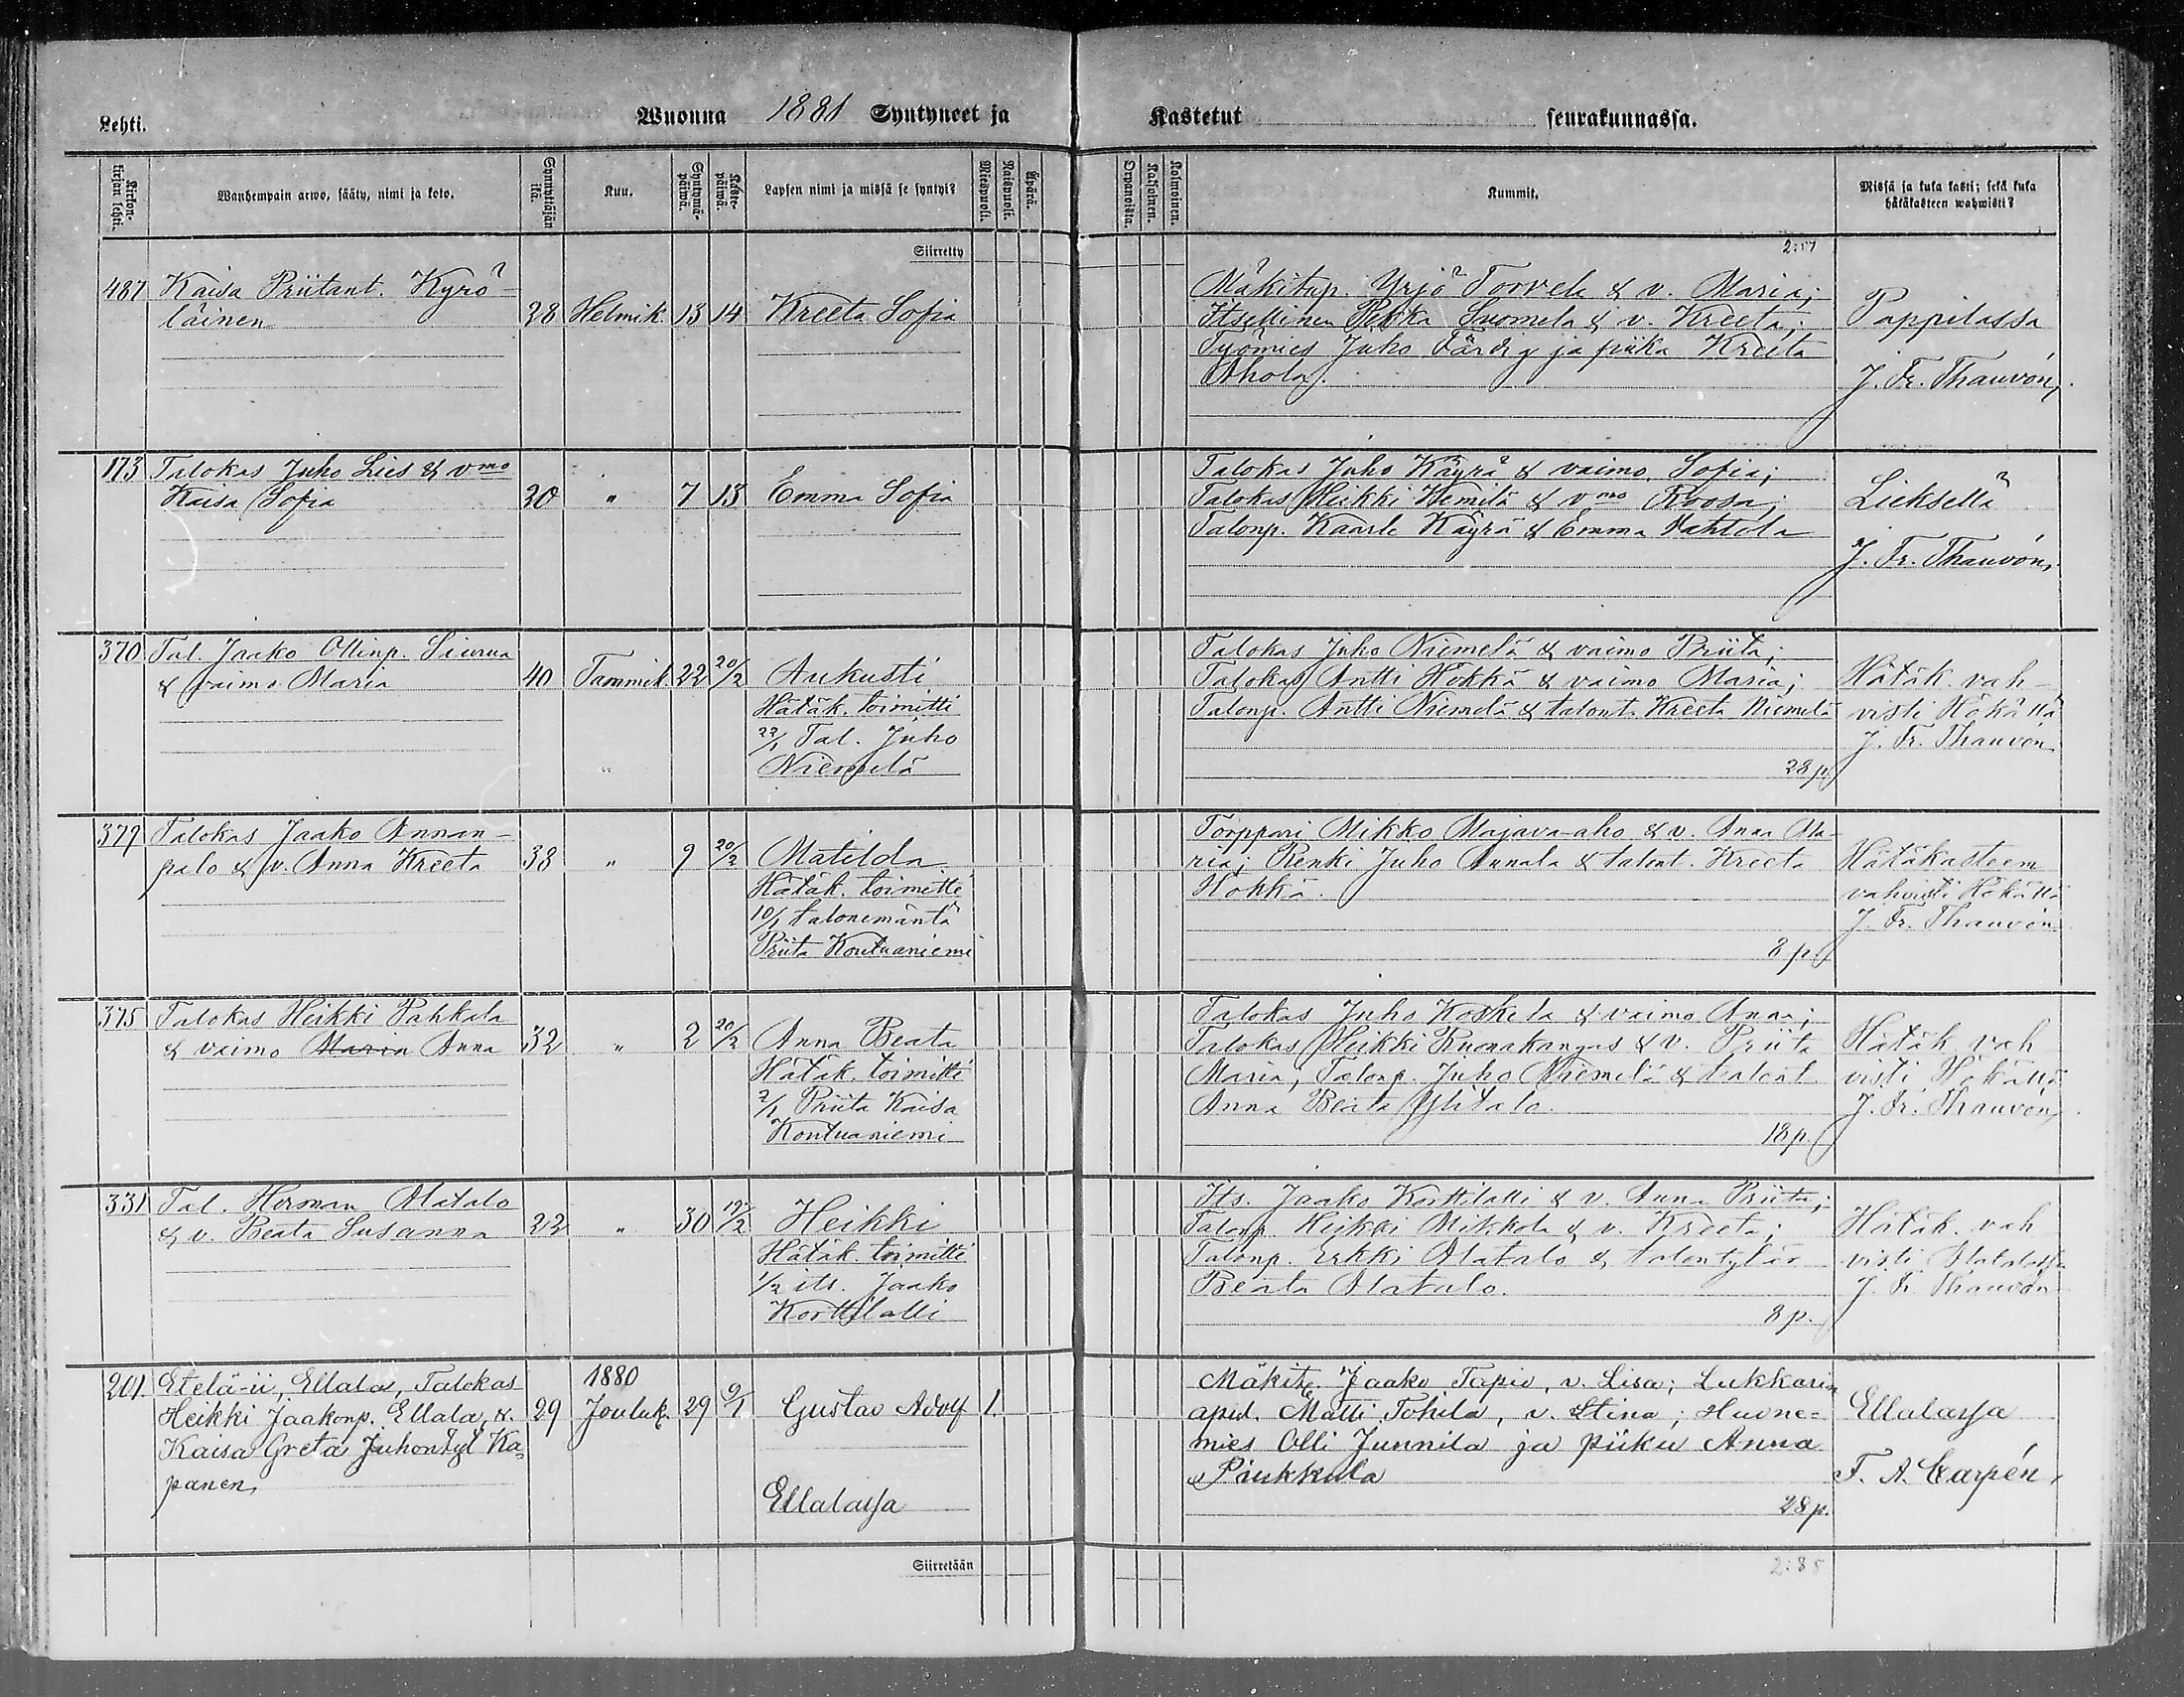 Lehti.
Wuonna 1881 Syntyneet ja
Kastetut seurakunnassa.
Kirkon-
kirjan lehti.
Wanhempain arwo, sääty, nimi ja koto.
Synnyttäjän
ikä.
Kuu.
Syntymä-
päiwä.
Kaste-
päiwä.
Lapsen nimi ja missä se syntyi?
Miespuoli.
Naispuoli.
Äpärä.
Orpanoista.
Kaksoinen.
Kolmoinen.
Kummit.
Missä ja kuka kasti; sekä kuka
hätäkasteen wahwisti?
Siirretty
487 Kaisa Priitant. Kyrö-
läinen 38 Helmik. 13 14 Kreeta Sofia
Mäkitup. Yrjö Torvela & v. Maria;
Itsellinen Pekka Suomela & v. Kreeta;
Työmies Juho Färdig ja piika Kreeta
Ahola.
Pappilassa
J. Fr. Thauvón,
173 Talokas Juho Lies & vmo
Kaisa Sofia 30 " 7 13 Emma Sofia
Talokas Juho Käyrä & vaimo Sofia;
Talokas Heikki Hemilä & vmo Roosa;
Talonp. Kaarle Käyrä & Emma Vahtola
Lieksellä
J. Fr. Thauvón,
370 Tal. Jaako Ollinp. Siurua
& vaimo Maria 40 Tammik. 22 20/2 Aukusti
Hätäk. toimitti
22/1 Tal. Juho
Niemelä
Talokas Juho Niemelä & vaimo Priita;
Talokas Antti Hökkä & vaimo Maria;
Talonp. Antti Niemelä & talont. Kreeta Niemelä
28 p.
Hätäk. vah-
visti Hökällä
J. Fr. Thauvón
379 Talokas Jaako Annan-
palo & v. Anna Kreeta 38 " 9 20/2 Matilda
Hätäk. toimitti
10/1 talonemäntä
Priita Kontuaniemi
Torppari Mikko Majava-aho & v. Anna Ma-
ria; Renki Juho Annala & talont. Kreeta
Hökkä.
8 p.
Hätäkasteen
vahvisti Hökällä
J. Fr. Thauvón
375 Talokas Heikki Pahkala
& vaimo Maria Anna 32 " 2 20/2 Anna Beata
Hätäk. toimitti
2/1 Priita Kaisa
Kontuaniemi
Talokas Juho Koskela & vaimo Anna;
Talokas Heikki Ruonakangas & v. Priita
Maria, Talonp. Juho Niemelä & talont.
Anna Beata Ylitalo.
18 p.
Hätäk. vah
visti Hökällä
J. Fr. Thauvón,
331 Tal. Herman Alatalo
& v. Beata Susanna 22 " 30 19/2 Heikki
Hätäk. toimitti
1/2 its. Jaako
Korttilalli
Its. Jaako Korttilalli & v. Anna Priita;
Talonp. Heikki Mikkola & v. Kreeta;
Talonp. Erkki Alatalo & talontytär
Beata Alatalo.
8 p.
Hätäk. vah
visti Alatalossa
J. Fr. Thauvón
201. Etelä-ii, Ellala, Talokas
Heikki Jaakonp. Ellala, v.
Kaisa Greta Juhontyt Ka-
panen,
29
1880
Jouluk. 29 9/1 Gustav Adolf 1.
Ellalassa
Mäkit. Jaako Tapio, v. Lisa; Lukkarin
apul. Matti Tokila, v. Stina; Huone-
mies Olli Junnila ja piiku Anna
Puukkola
28 p.
Ellalassa
F. A. Carpén,
Siirretään
2:85